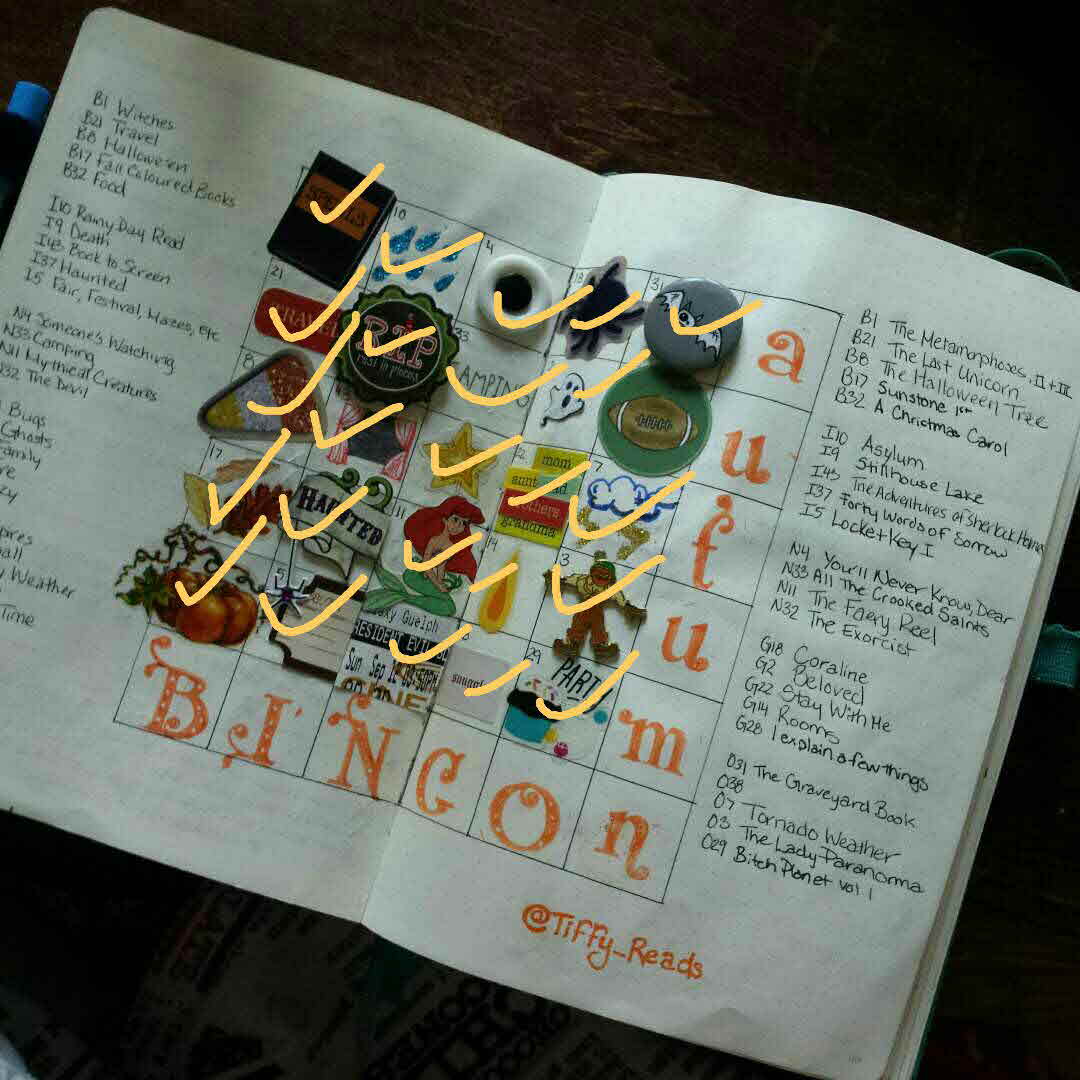 B1 Witches
B21 Travel
B8 Halloween
B17 Fall Coloured Books
B32 Food
I10 Rainy Day Read
I9 Death
I43 Book to Screen
I37 Haunted
I5 Fair, Festival, Mazes, etc
N4 Someone's Watching
N33 Camping
N11 Mythical Creatures
N32 The Devil
Bugs
Ghosts
Family
Weather
Time
SPELLS
10
4
18
31
21
TRAVEL
R.I.P
33
CAMPING
8
17
HAUNTED
11
mom
brothers
grandma
7
14
3
5
Galaxy Guelph
RESIDENT EVIL
Sun Sep
snuggle
29
PARTY
a
u
t
u
m
n
B I N G O
B1 The Metamorphoses, I + II
B21 The Last Unicorn
B8 The Halloween Tree
B17 Sunstone 1st
B32 A Christmas Carol
I10 Asylum
I9 Stillhouse Lake
I43 The Adventures of Sherlock
I37 Forty Words of Sorrow
I5 Locke + Key I
N4 You'll Never Know, Dear
N33 All The Crooked Saints
N11 The Faery Reel
N32 The Exorcist
G18 Coraline
G2 Beloved
G22 Stay With Me
G14 Rooms
G28 I explain a few things
O31 The Graveyard Book
O38
O7 Tornado Weather
O3 The Lady Paranorma
O29 Bitch Planet vol. 1
@Tiffy_Reads